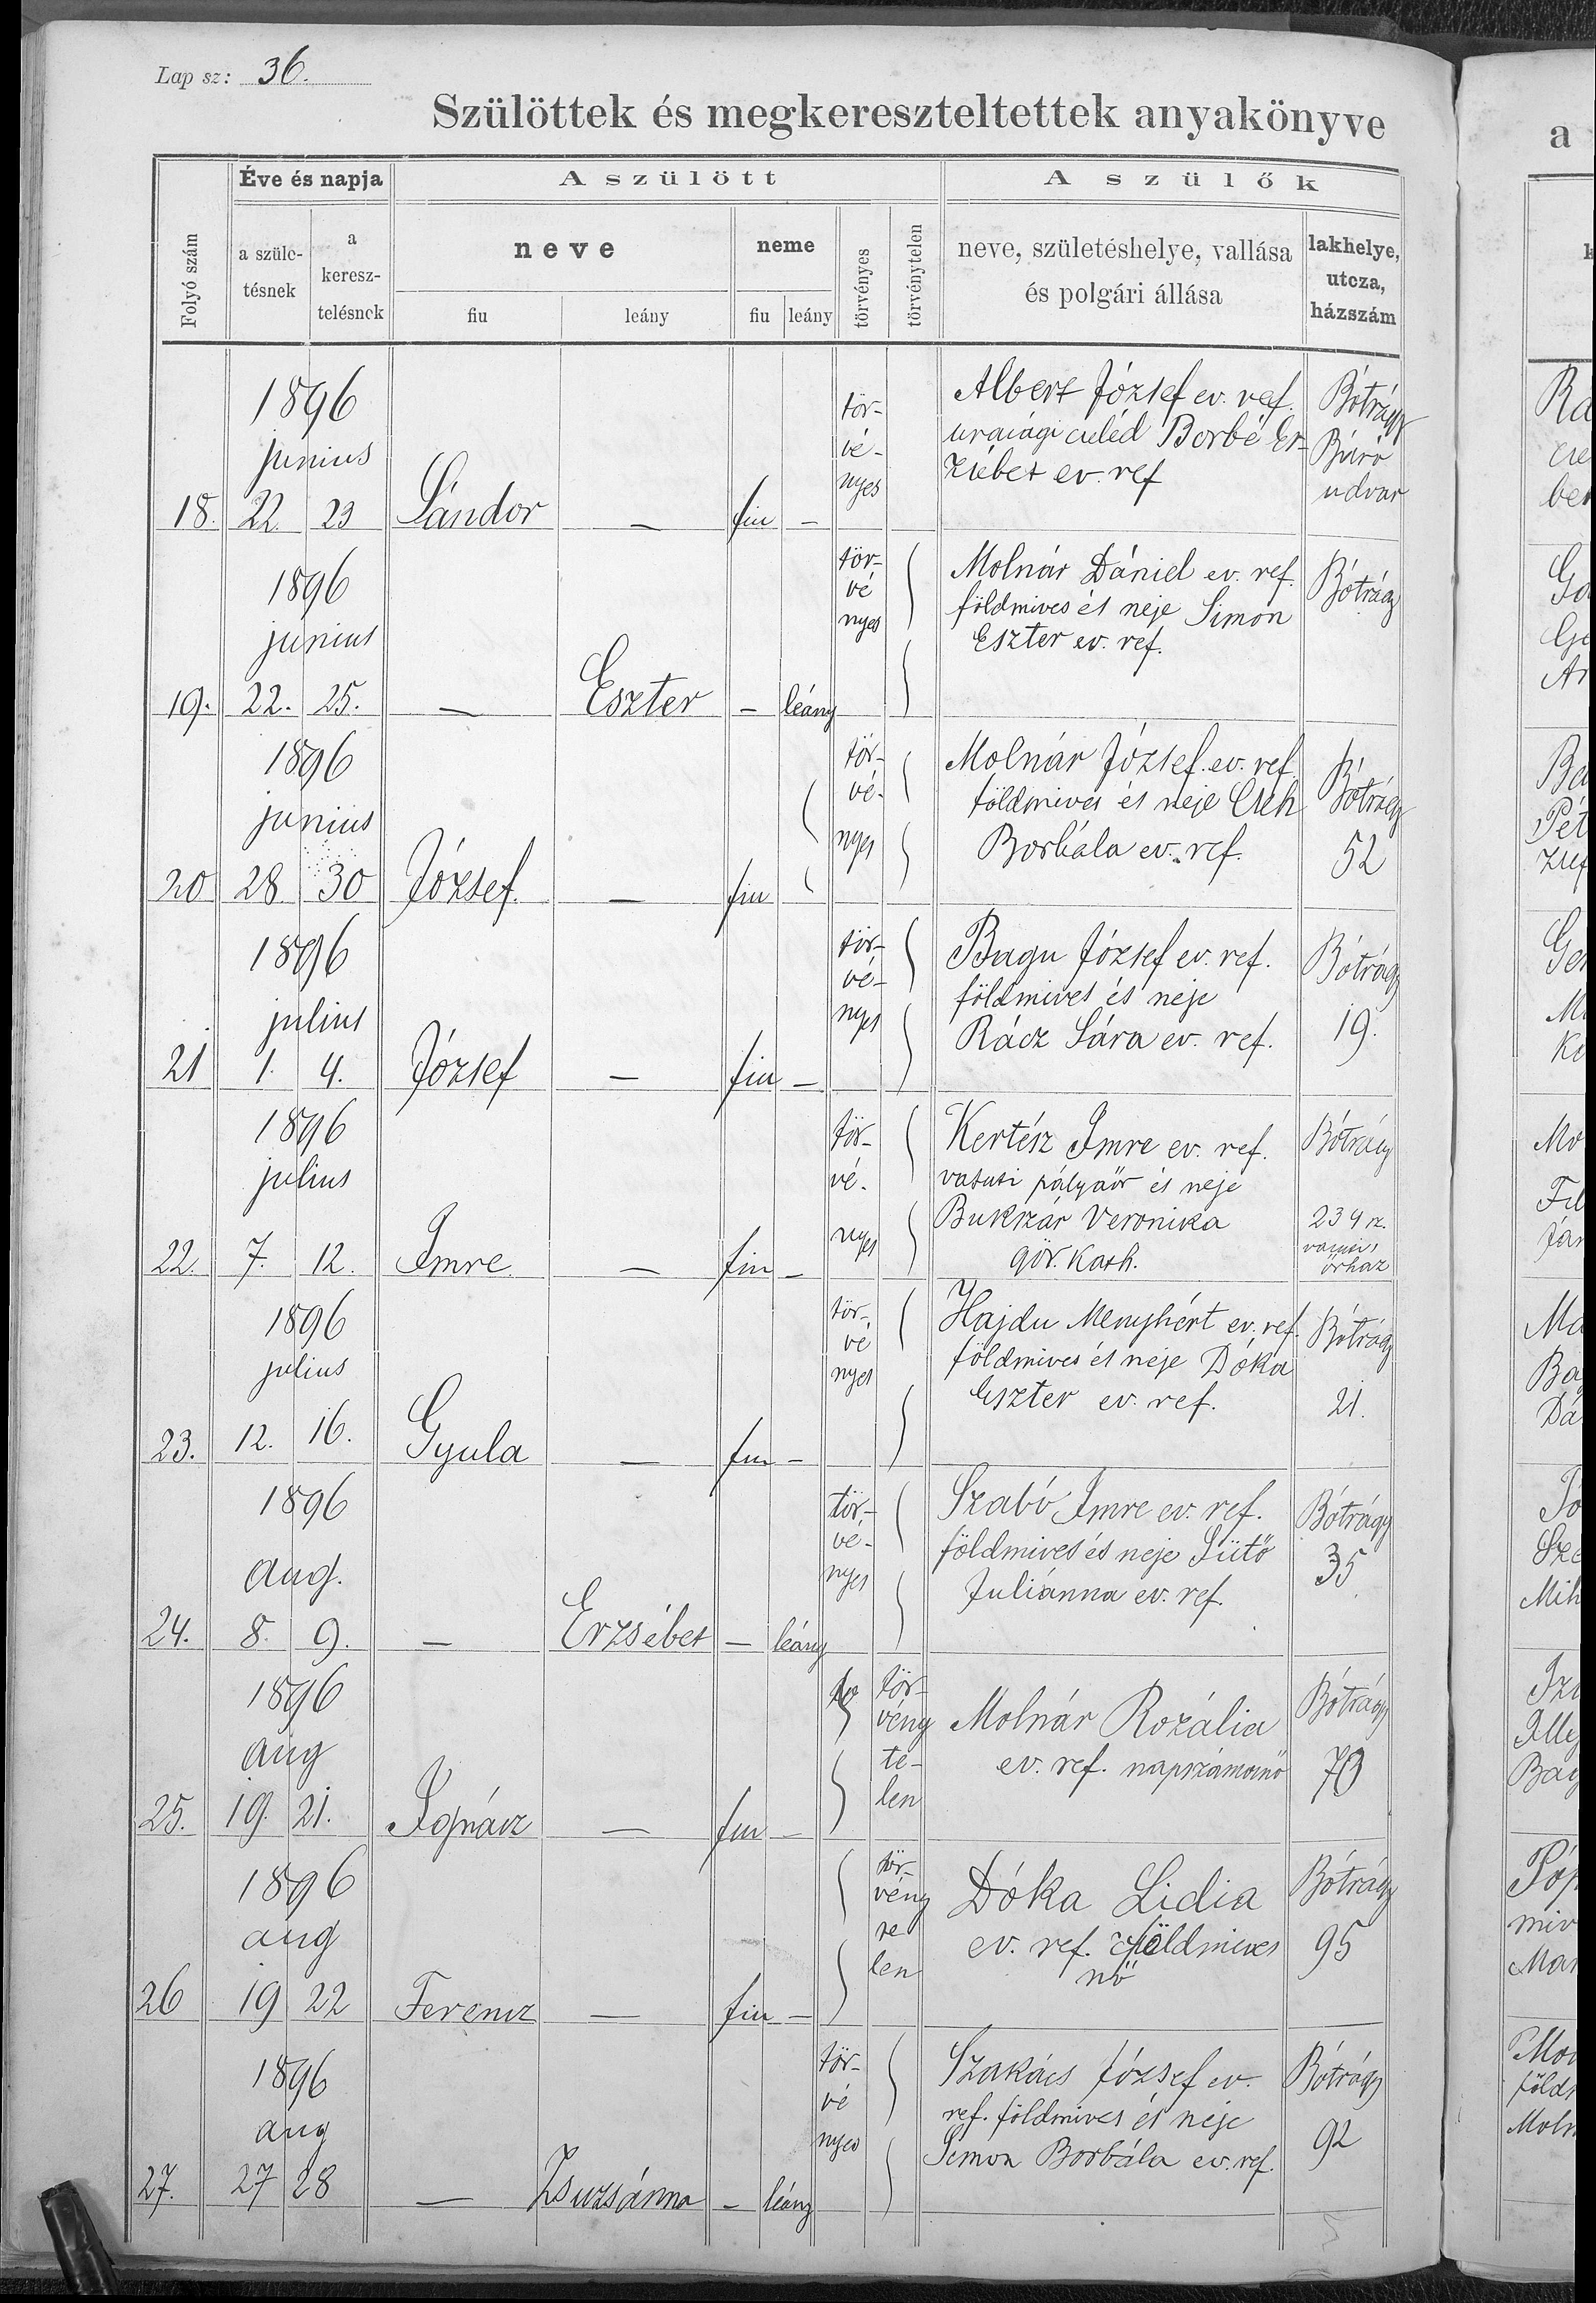 Lap sz: 36.
Szülöttek és megkereszteltettek anyakönyve
a
Folyó szám
Éve és napja
a szüle-
tésnek
a
keresz-
telésnek
A szülött
neve
fiu
leány
neme
fiu
leány
törvényes
törvénytelen
A szülők
neve, születéshelye, vallása
és polgári állása
lakhelye,
utcza,
házszám
1896
junius
18. 22. 23 Sándor — fiu —
tör-
vé-
nyes
Albert József ev. ref.
urasági cseléd Borbé Er-
zsébet ev. ref
Bótrágy
Búró
udvar
1896
junius
19. 22. 25. — Eszter — leány
tör-
vé
nyes
Molnár Dániel ev. ref.
földmives és neje Simon
Eszter ev. ref.
Bótrágy
1896
junius
20 28 30 József. — fiu
tör-
vé-
nyes
Molnár József. ev. ref.
földmives és neje Cseh
Borbála ev. ref.
Bótrágy
52
1896
julius
21 1. 4. József — fiu —
tör-
vé-
nyes
Bagu József ev. ref.
földmives és neje
Rácz Sára ev. ref.
Bótrágy
19.
1896
julius
22. 7. 12. Imre — fiu —
tör-
vé-
nyes
Kertész Imre ev. ref.
vasuti pályaőr és neje
Bukszár Veronika
gör. kath.
Bótrágy
234 sz.
vasuti
őrház
1896
julius
23. 12. 16. Gyula — fiu —
tör-
vé
nyes
Hajdu Menyhért ev. ref.
földmives és neje Dóka
Eszter ev. ref.
Bótrágy
21.
1896
Aug.
24. 8. 9. — Erzsébet — leány
tör-
vé-
nyes
Szabó Imre ev. ref.
földmives és neje Sütő
Juliánna ev. ref.
Bótrágy
35
1896
aug
25. 19. 21. Ignácz — fiu —
tör-
vény
te-
len
Molnár Rozália
ev. ref. napszámosnő
Bótrágy
70
1896
aug
26 19 22 Ferencz — fiu —
tör-
vény
te
len
Dóka Lidia
ev. ref. földmives
nő
Bótrágy
95
1896
aug
27. 27 28 — Zsuzsánna — leány
tör-
vé
nyes
Szakács József ev.
ref. földmives és neje
Simon Borbála ev. ref.
Bótrágy
92